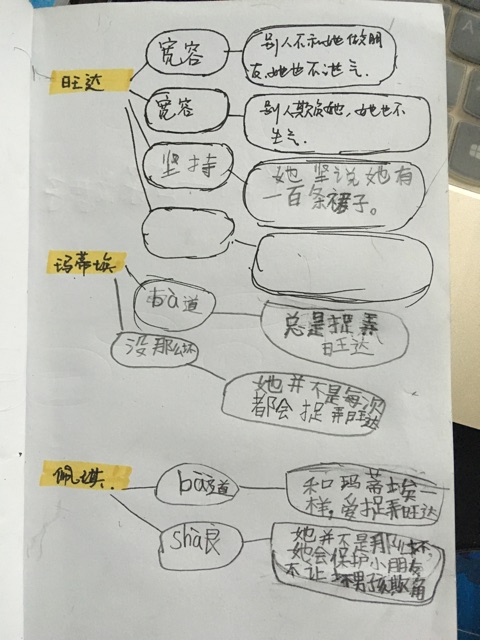 旺达
宽容
别人不和她做朋
友,她也不泄气.
宽容
别人欺负她,她也不
生气.
坚持
她坚说她有
一百条裙子。
玛蒂埃
bà道
总是捉弄
旺达
没那么坏
她并不是每次
都会捉弄旺达
佩琪.
bà道
和玛蒂埃一
样,爱捉弄旺达
shà良
她并不是那么坏
她会保护小朋友
不让坏男孩欺角